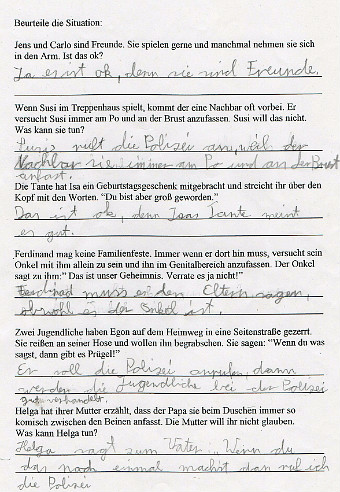 Beurteile die Situation:
Jens und Carlo sind Freunde. Sie spielen gerne und manchmal nehmen sie sich
in den Arm. Ist das ok?
Ja es ist ok, denn sie sind Freunde.
Wenn Susi im Treppenhaus spielt, kommt der eine Nachbar oft vorbei. Er
versucht Susi immer am Po und an der Brust anzufassen. Susi will das nicht.
Was kann sie tun?
ruft die Polizei an, weil der
Nachbar sie immer am Po und an der Brust
anfast.
Die Tante hat Isa ein Geburtstagsgeschenk mitgebracht und streicht ihr über den
Kopf mit den Worten. "Du bist aber groß geworden."
Das ist ok, denn Isas Tante meint
es gut.
Ferdinand mag keine Familienfeste. Immer wenn er dort hin muss, versucht sein
Onkel mit ihm allein zu sein und ihn im Genitalbereich anzufassen. Der Onkel
sagt zu ihm:" Das ist unser Geheimnis. Verrate es ja nicht!"
muss es den Eltern sagen,
obwohl es der Onkel ist.
Zwei Jugendliche haben Egon auf dem Heimweg in eine Seitenstraße gezerrt.
Sie reißen an seiner Hose und wollen ihn begrabschen. Sie sagen: "Wenn du was
sagst, dann gibt es Prügel!"
Er soll die Polizei anrufen, dann
werden die Jugendliche bei der Polizei
Helga hat ihrer Mutter erzählt, dass der Papa sie beim Duschen immer so
komisch zwischen den Beinen anfasst. Die Mutter will ihr nicht glauben.
Was kann Helga tun?
Helga sagt zum Vater: Wenn du
das noch einmal machst dan ruf ich
die Polizei